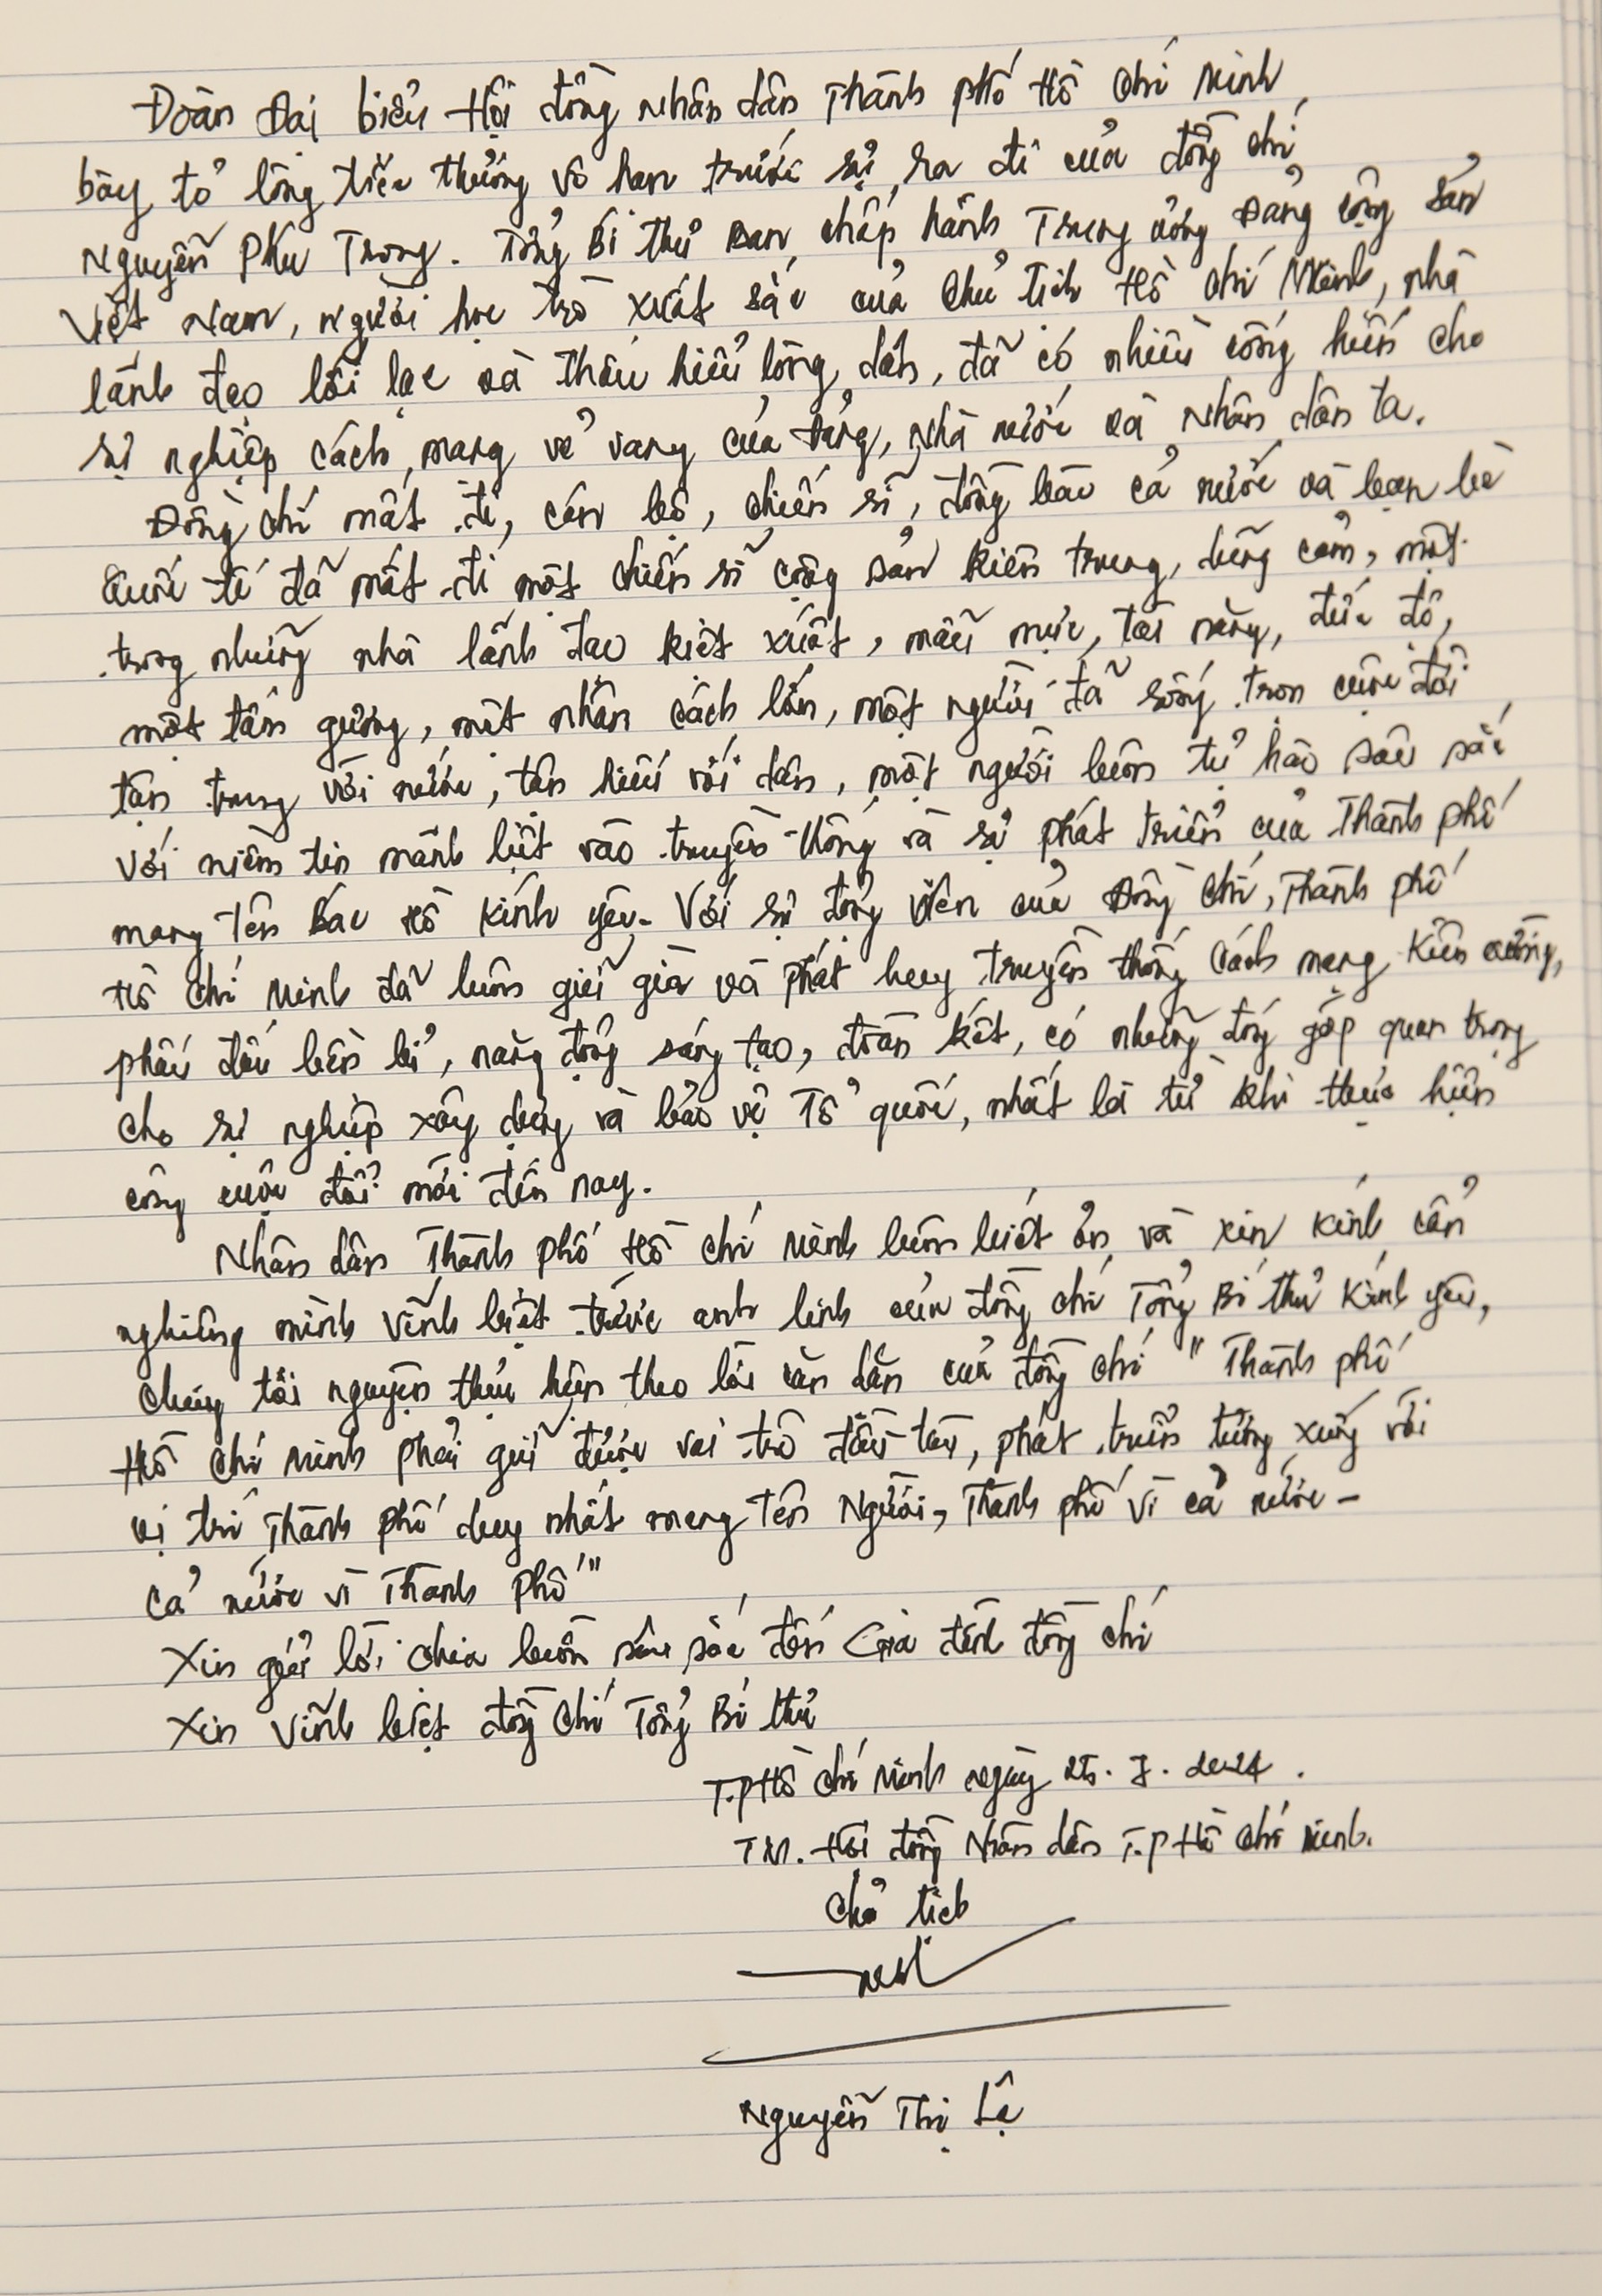 Đoàn Đại biểu Hội đồng Nhân dân Thành phố Hồ Chí Minh
bày tỏ lòng tiếc thương vô hạn trước sự ra đi của đồng chí
Nguyễn Phú Trọng. Tổng Bí thư Ban chấp hành Trung ương Đảng cộng sản
Việt Nam, người học trò xuất sắc của Chủ tịch Hồ Chí Minh, nhà
lãnh đạo lỗi lạc và thấu hiểu lòng dân, đã có nhiều cống hiến cho
sự nghiệp cách mạng vẻ vang của Đảng, Nhà nước và Nhân dân ta.
Đồng chí mất đi, cán bộ, chiến sĩ, đồng bào cả nước và bạn bè
Quốc tế đã mất đi một chiến sĩ cộng sản kiên trung, dũng cảm, một
trong những nhà lãnh đạo kiệt xuất, mẫu mực, tài năng, đức độ,
một tấm gương, một nhân cách lớn, một người đã sống trọn cuộc đời
tận trung với nước, tận hiếu với dân, một người luôn tự hào sâu sắc
với niềm tin mãnh liệt vào truyền thống và sự phát triển của Thành phố
mang tên Bác Hồ kính yêu. Với sự động viên của Đồng chí, Thành phố
Hồ Chí Minh đã luôn giữ gìn và phát huy truyền thống cách mạng kiên cường,
phấn đấu bền bỉ, năng động sáng tạo, đoàn kết, có những đóng góp quan trọng
cho sự nghiệp xây dựng và bảo vệ Tổ quốc, nhất là từ khi thực hiện
công cuộc đổi mới đến nay.
Nhân dân Thành phố Hồ Chí Minh luôn biết ơn và xin kính cẩn
nghiêng mình vĩnh biệt trước anh linh của đồng chí Tổng Bí thư kính yêu,
chúng tôi nguyện thực hiện theo lời căn dặn của đồng chí "Thành phố
Hồ Chí Minh phải giữ được vai trò đầu tàu, phát triển tương xứng với
vị trí Thành phố duy nhất mang tên Người, Thành phố vì cả nước -
cả nước vì Thành phố"
Xin gửi lời chia buồn sâu sắc đến Gia đình đồng chí
Xin vĩnh biệt đồng chí Tổng Bí thư
T.P Hồ Chí Minh ngày 25.7.2024.
TM. Hội đồng Nhân dân T.P Hồ Chí Minh.
Chủ tịch
Nguyễn Thị Lệ